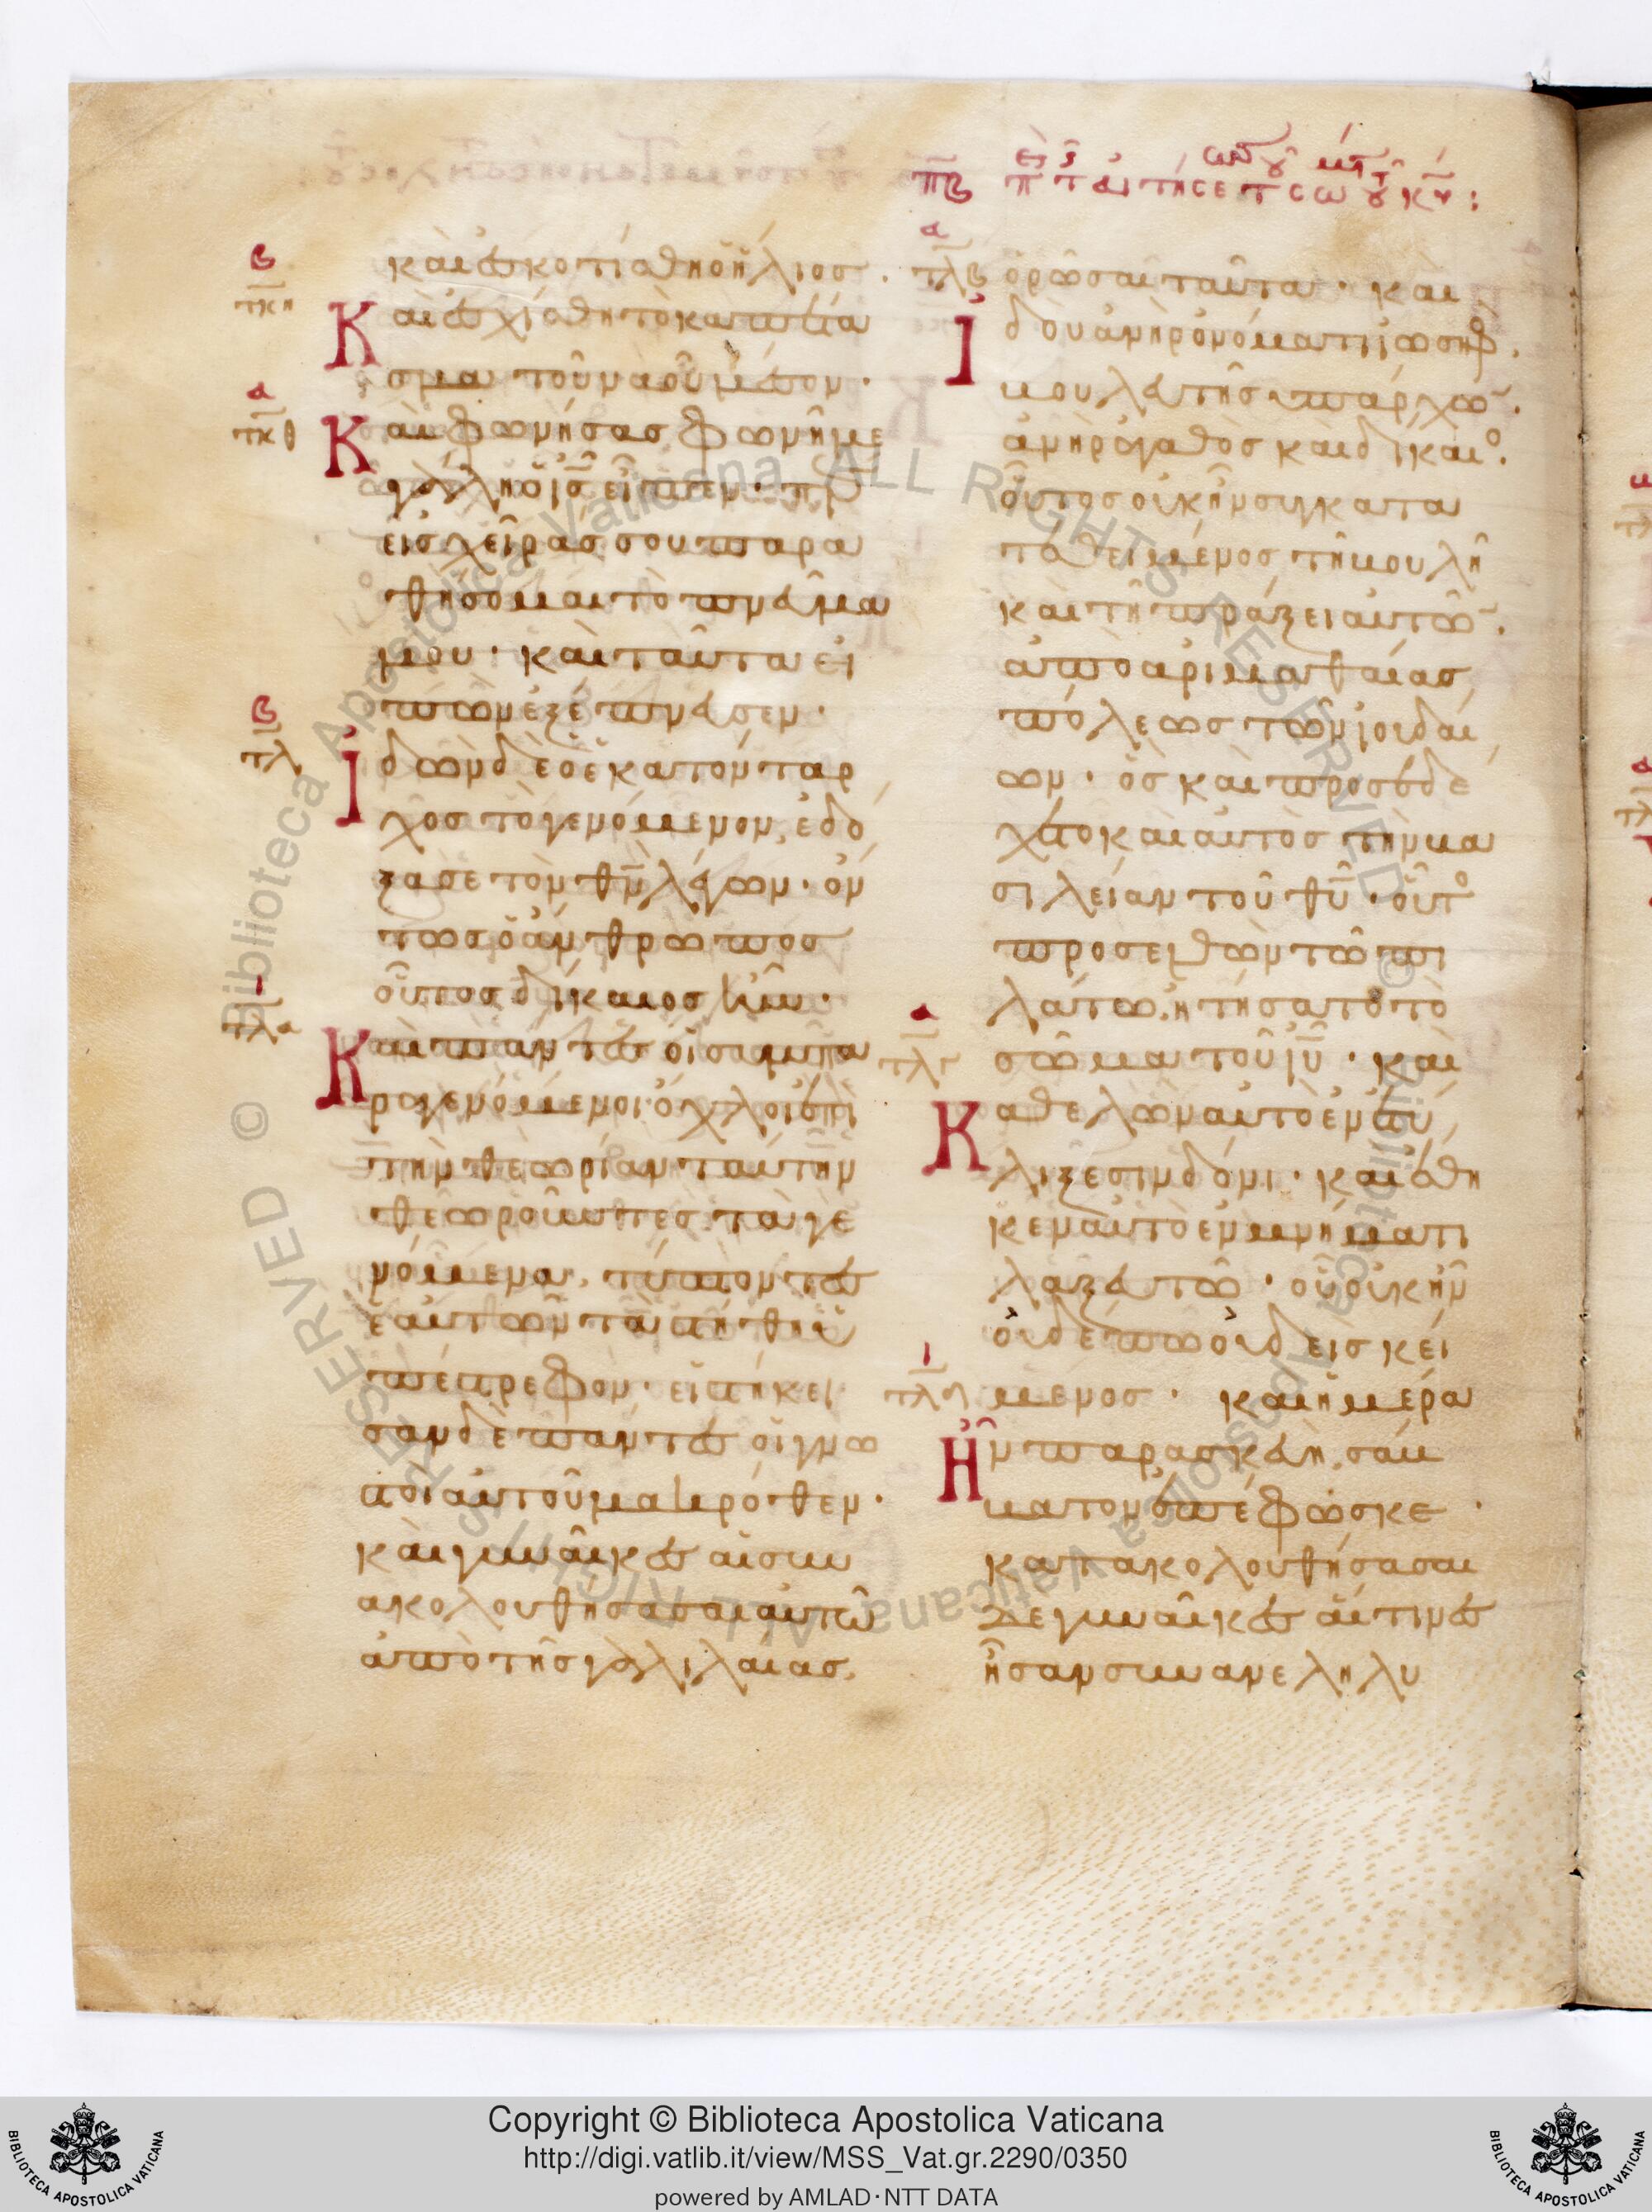 καὶ ἐσκοτίσθη ὁ ἥλιος ·
Καὶ ἐσχίσθη τὸ καταπέτα
σμα τοῦ ναοῦ μέσον ·
Καὶ φωνήσας φωνῇ με
γάλῃ ὁ ις̄ εἶπεν · περ
εἰς χεῖράς σου παρα
θήσομαι τὸ πνεῦμα
μου · καὶ ταῦτα εἰ
πὼν ἐξέπνευσεν ·
Ἰδὼν δὲ ὁ ἑκατόνταρ
χος τὸ γενόμενον, ἐδό
ξασε τὸν θν̄ λέγων · ὄν
τως ὁ ἄνθρωπος
οὗτος δίκαιος ἦν ·
Καὶ πάντες οἱ συμπα
ραγενόμενοι ὄχλοι ἐπὶ
τὴν θεωρίαν ταύτην
θεωροῦντες τὰ γε
νόμενα, τύπτοντες
ἑαυτῶν τὰ στήθη ὑ
πέστρεφον · εἱστήκει
σαν δὲ πάντες οἱ γνω
στοὶ αὐτοῦ μακρόθεν ·
καὶ γυναῖκες αἱ συν
ακολουθήσασαι αὐτῷ
ἀπὸ τῆς γαλιλαίας,
πβ
β
τκη
α
τκθ
β
τλ
ι
τλα
α
τλβ
ὁρῶσαι ταῦτα · καὶ
Ἰδοὺ ἀνὴρ ὀνόματι ἰωσὴφ,
βουλευτὴς ὑπάρχω̄ ·
ἀνὴρ ἀγαθὸς καὶ δίκαιο ·
οὗτος οὐκ ἦν συγκατα
τεθειμένος τῇ βουλῇ
καὶ τῇ πράξει αὐτῶ̄ ·
ἀπὸ ἀριμαθαίας
πόλεως τῶν ἰουδαί
ων · ὃς καὶ προσεδέ
χετο καὶ αὐτὸς τὴν βα
σιλείαν τοῦ θῡ · οὗτο
προσελθὼν τῷ πι
λάτῳ, ᾐτήσατο τὸ
σῶμα τοῦ ιῡ · καὶ
Καθελὼν αὐτὸ ἐνετύ
λιξε σινδόνι · καὶ ἔθη
κεν αὐτὸ ἐν μνήματι
λαξευτῷ · οὗ οὐκ ἦν
οὐδέπω οὐδεὶς κεί
μενος · καὶ ἡμέρα
Ἦν παρασκευὴ, σάβ
βατον ἐπέφωσκε ·
κατακολουθήσασαι
δὲ γυναῖκες αἵτινες
ἦσαν συνανεληλυ
α
τλγ
ι
τλδ
Copyright © Biblioteca Apostolica Vaticana
http://digi.vatlib.it/view/MSS_Vat.gr.2290/0350
powered by AMLAD·NTT DATA
BIBLIOTECA APOSTOLICA VATICANA
BIBLIOTECA APOSTOLICA VATICANA